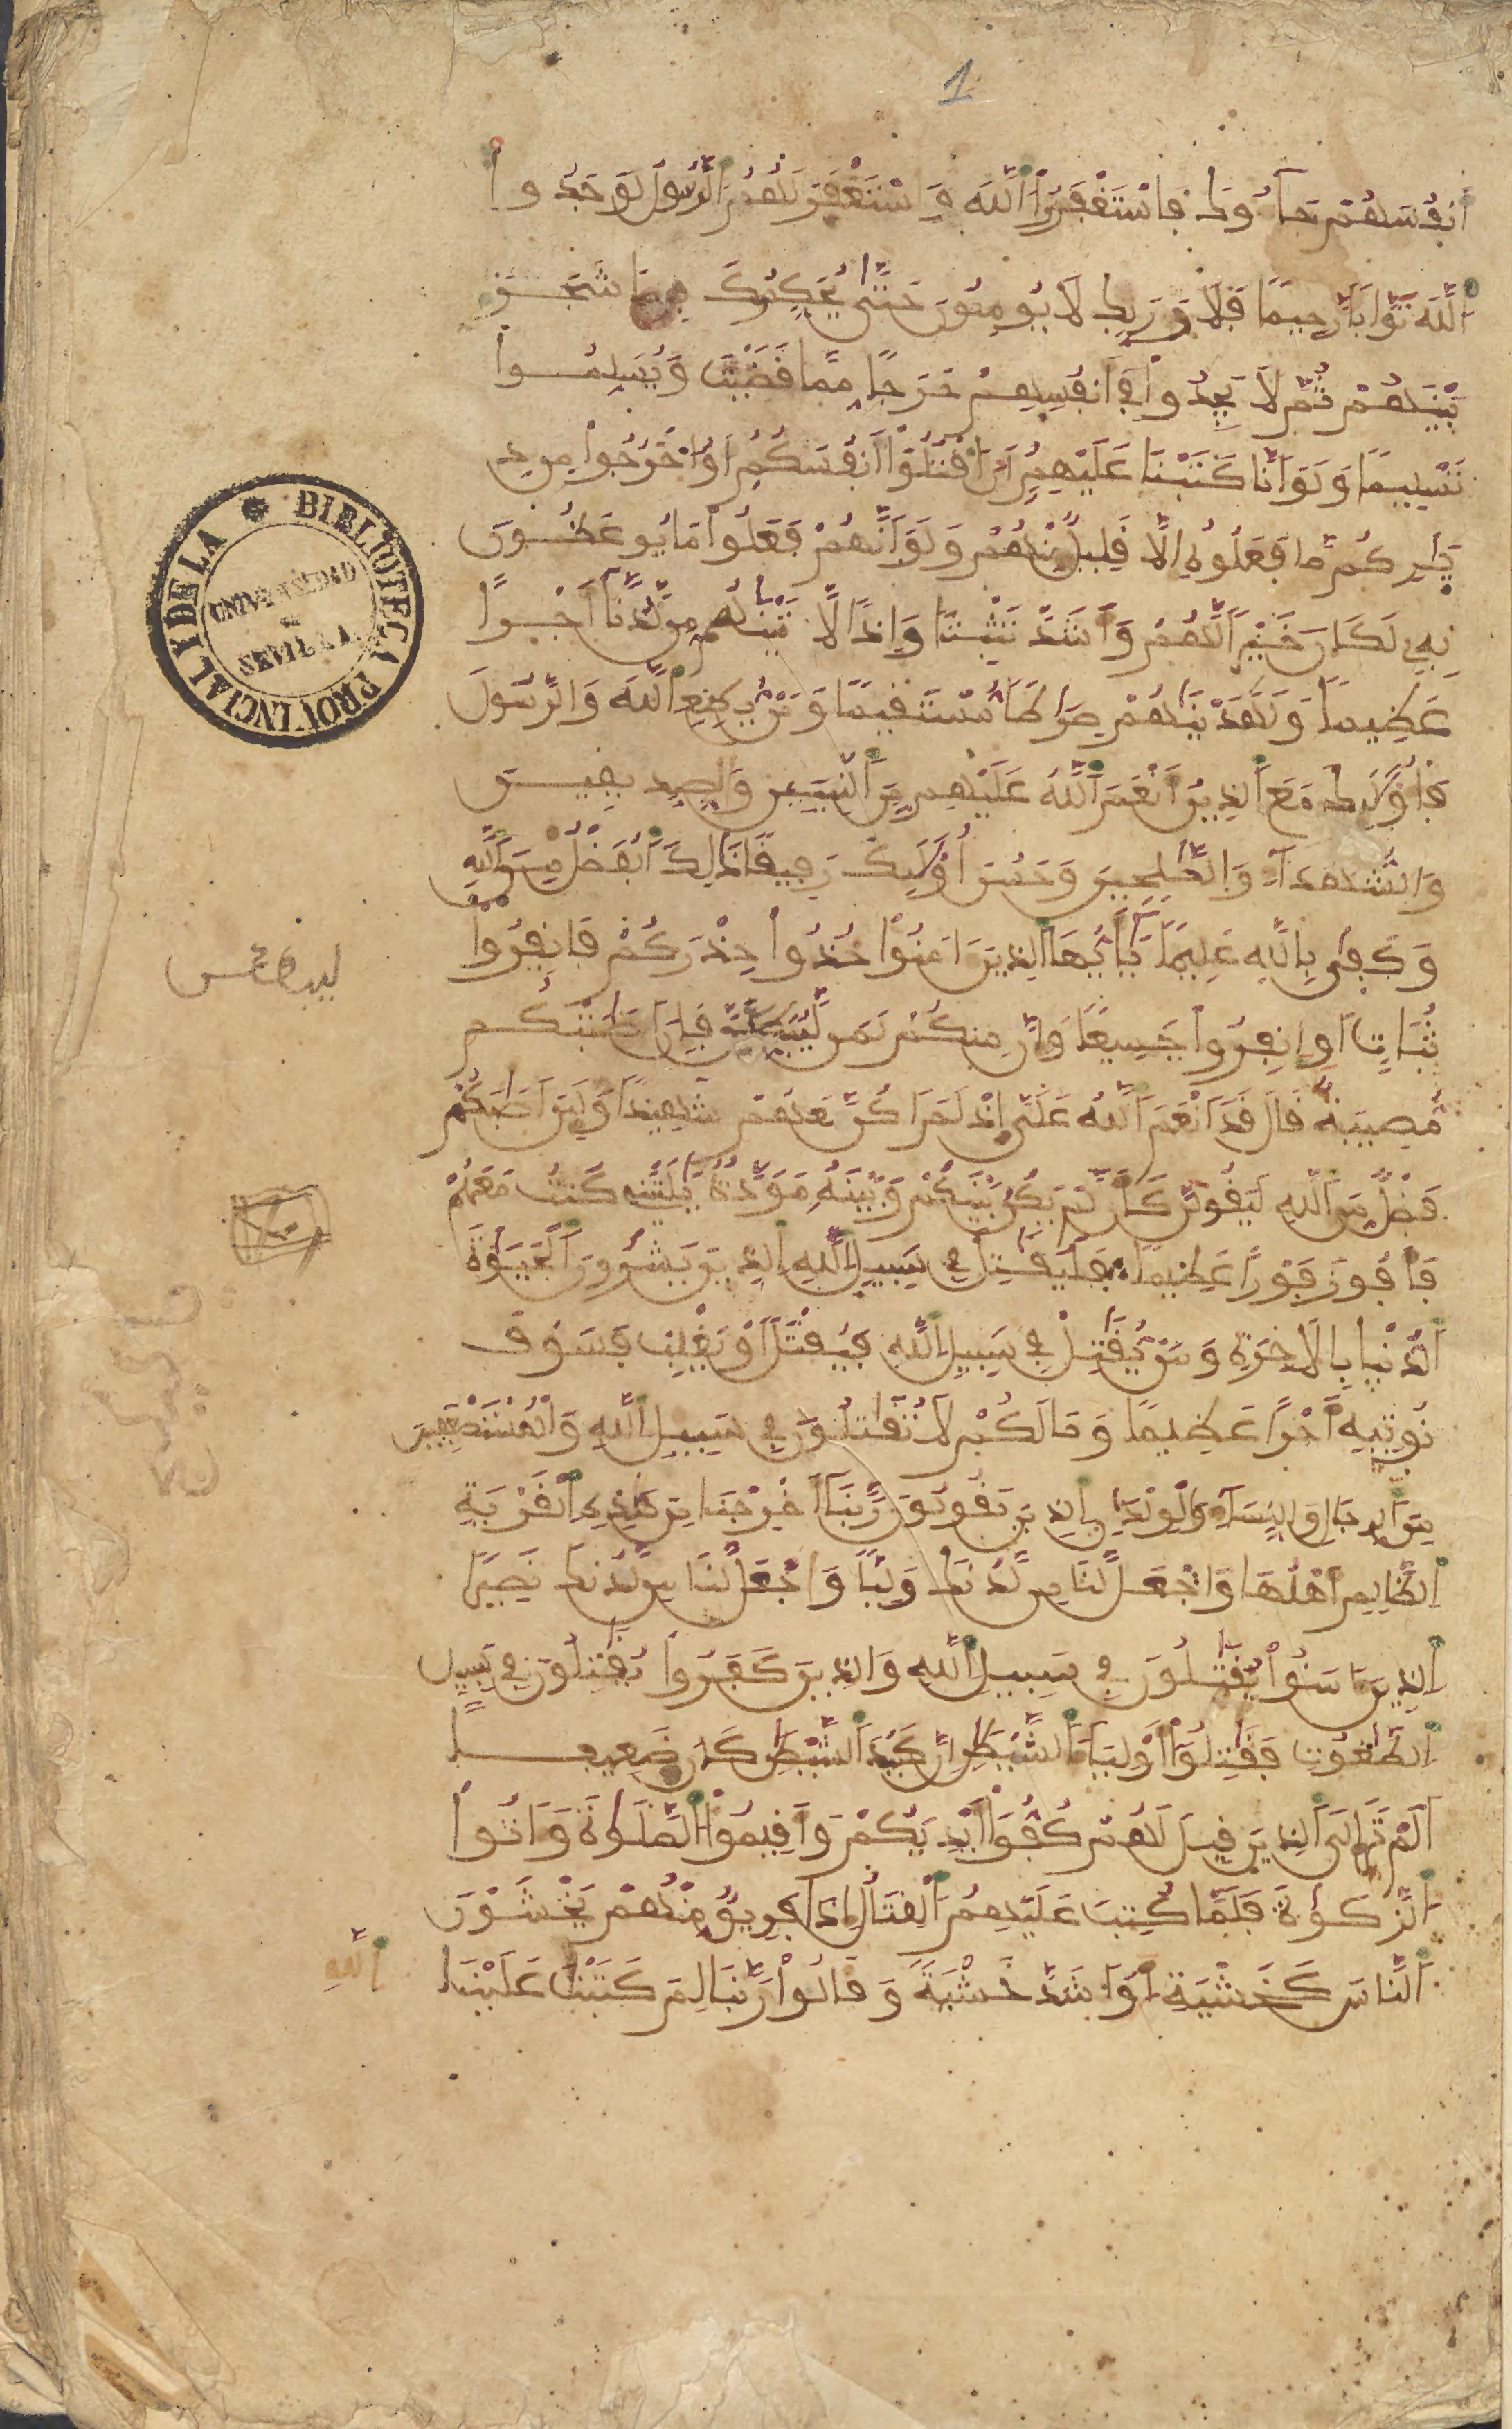 1
أَنفُسَهُمْ جَآءُوكَ فَاسْتَغْفَرُواْ اللَّهَ وَاسْتَغْفَرَ لَهُمُ الرَّسُولُ لَوَجَدُواْ
اللَّهَ تَوَّابًا رَّحِيمًا فَلَا وَرَبِّكَ لَا يُومِنُونَ حَتَّىٰ يُحَكِّمُوكَ فِيمَا شَجَرَ
بَيْنَهُمْ ثُمَّ لَا يَجِدُواْ فِي أَنفُسِهِمْ حَرَجًا مِّمَّا قَضَيْتَ وَيُسَلِّمُواْ
تَسْلِيمًا وَلَوَ اَنَّا كَتَبْنَا عَلَيْهِمُ أَنُ اقْتُلُواْ أَنفُسَكُمُ أَوُ اخْرُجُواْ مِن دِ
يَٰرِكُم مَّا فَعَلُوهُ إِلَّا قَلِيلٌ مِّنْهُمْ وَلَوَ اَنَّهُمْ فَعَلُواْ مَا يُوعَظُونَ
بِهِۦ لَكَانَ خَيْرًا لَّهُمْ وَأَشَدَّ تَثْبِيتًا وَإِذًا لَّأَتَيْنَٰهُم مِّن لَّدُنَّا أَجْرًا
عَظِيمًا وَلَهَدَيْنَٰهُمْ صِرَٰطًا مُّسْتَقِيمًا وَمَنْ يُّطِعِ اللَّهَ وَالرَّسُولَ
فَأُوْلَٰئِكَ مَعَ الذِينَ أَنْعَمَ اللَّهُ عَلَيْهِم مِّنَ النَّبِيِّينَ وَالصِّدِّيقِينَ
وَالشُّهَدَآءِ وَالصَّٰلِحِينَ وَحَسُنَ أُوْلَٰئِكَ رَفِيقًا ذَٰلِكَ الْفَضْلُ مِنَ اللَّهِ
وَكَفَىٰ بِاللَّهِ عَلِيمًا يَٰأَيُّهَا الذِينَ ءَامَنُواْ خُذُواْ حِذْرَكُمْ فَانفِرُواْ
ثُبَاتٍ أَوِ انفِرُواْ جَمِيعًا وَإِنَّ مِنكُمْ لَمَن لَّيُبَطِّئَنَّ فَإِنَ اَصَٰبَتْكُم
مُّصِيبَةٌ قَالَ قَدَ اَنْعَمَ اللَّهُ عَلَيَّ إِذْ لَمَ اَكُن مَّعَهُمْ شَهِيدًا وَلَئِنَ اَصَٰبَكُمْ
فَضْلٌ مِّنَ اللَّهِ لَيَقُولَنَّ كَأَن لَّمْ يَكُن بَيْنَكُمْ وَبَيْنَهُ مَوَدَّةٌ يَٰلَيْتَنِي كُنتُ مَعَهُمْ
فَأَفُوزَ فَوْزًا عَظِيمًا فَلْيُقَٰتِلْ فِي سَبِيلِ اللَّهِ الذِينَ يَشْرُونَ الْحَيَوٰةَ
الدُّنْيَا بِالَاخِرَةِ وَمَنْ يُّقَٰتِلْ فِي سَبِيلِ اللَّهِ فَيُقْتَلَ أَوْ يَغْلِبْ فَسَوْفَ
نُوتِيهِ أَجْرًا عَظِيمًا وَمَا لَكُمْ لَا تُقَٰتِلُونَ فِي سَبِيلِ اللَّهِ وَالْمُسْتَضْعَفِينَ
مِنَ الرِّجَالِ وَالنِّسَآءِ وَالْوِلْدَٰنِ الذِينَ يَقُولُونَ رَبَّنَا أَخْرِجْنَا مِنْ هَٰذِهِ الْقَرْيَةِ
الظَّالِمِ أَهْلُهَا وَاجْعَل لَّنَا مِن لَّدُنكَ وَلِيًّا وَاجْعَل لَّنَا مِن لَّدُنكَ نَصِيرًا
الذِينَ ءَامَنُواْ يُقَٰتِلُونَ فِي سَبِيلِ اللَّهِ وَالذِينَ كَفَرُواْ يُقَٰتِلُونَ فِي سَبِيلِ
الطَّٰغُوتِ فَقَٰتِلُواْ أَوْلِيَآءَ الشَّيْطَٰنِ إِنَّ كَيْدَ الشَّيْطَٰنِ كَانَ ضَعِيفًا
أَلَمْ تَرَ إِلَى الذِينَ قِيلَ لَهُمْ كُفُّواْ أَيْدِيَكُمْ وَأَقِيمُواْ الصَّلَوٰةَ وَءَاتُواْ
الزَّكَوٰةَ فَلَمَّا كُتِبَ عَلَيْهِمُ الْقِتَالُ إِذَا فَرِيقٌ مِّنْهُمْ يَخْشَوْنَ
النَّاسَ كَخَشْيَةِ اللَّهِ أَوَ اَشَدَّ خَشْيَةً وَقَالُواْ رَبَّنَا لِمَ كَتَبْتَ عَلَيْنَا
BIBLIOTECA PROVINCIAL Y DE LA
UNIVERSIDAD
DE
SEVILLA